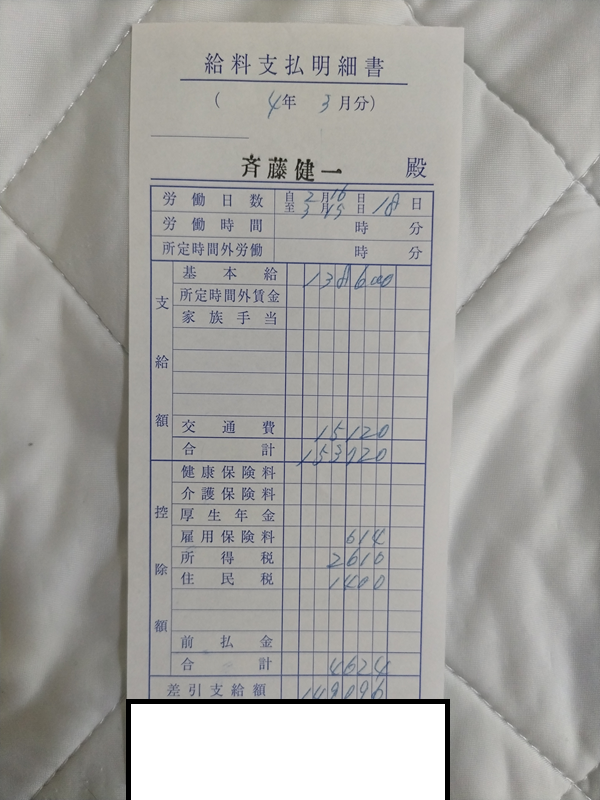 給料支払明細書
( 4年 3月分)
斉藤健一 殿
労働日数 自 2月16日 至 3月15日 18日
労働時間 時 分
所定時間外労働 時 分
支給額
基本給 138600
所定時間外賃金
家族手当
交通費 15120
合計 153720
控除額
健康保険料
介護保険料
厚生年金
雇用保険料 614
所得税 2610
住民税 1400
前払金
合計 4624
差引支給額 149096